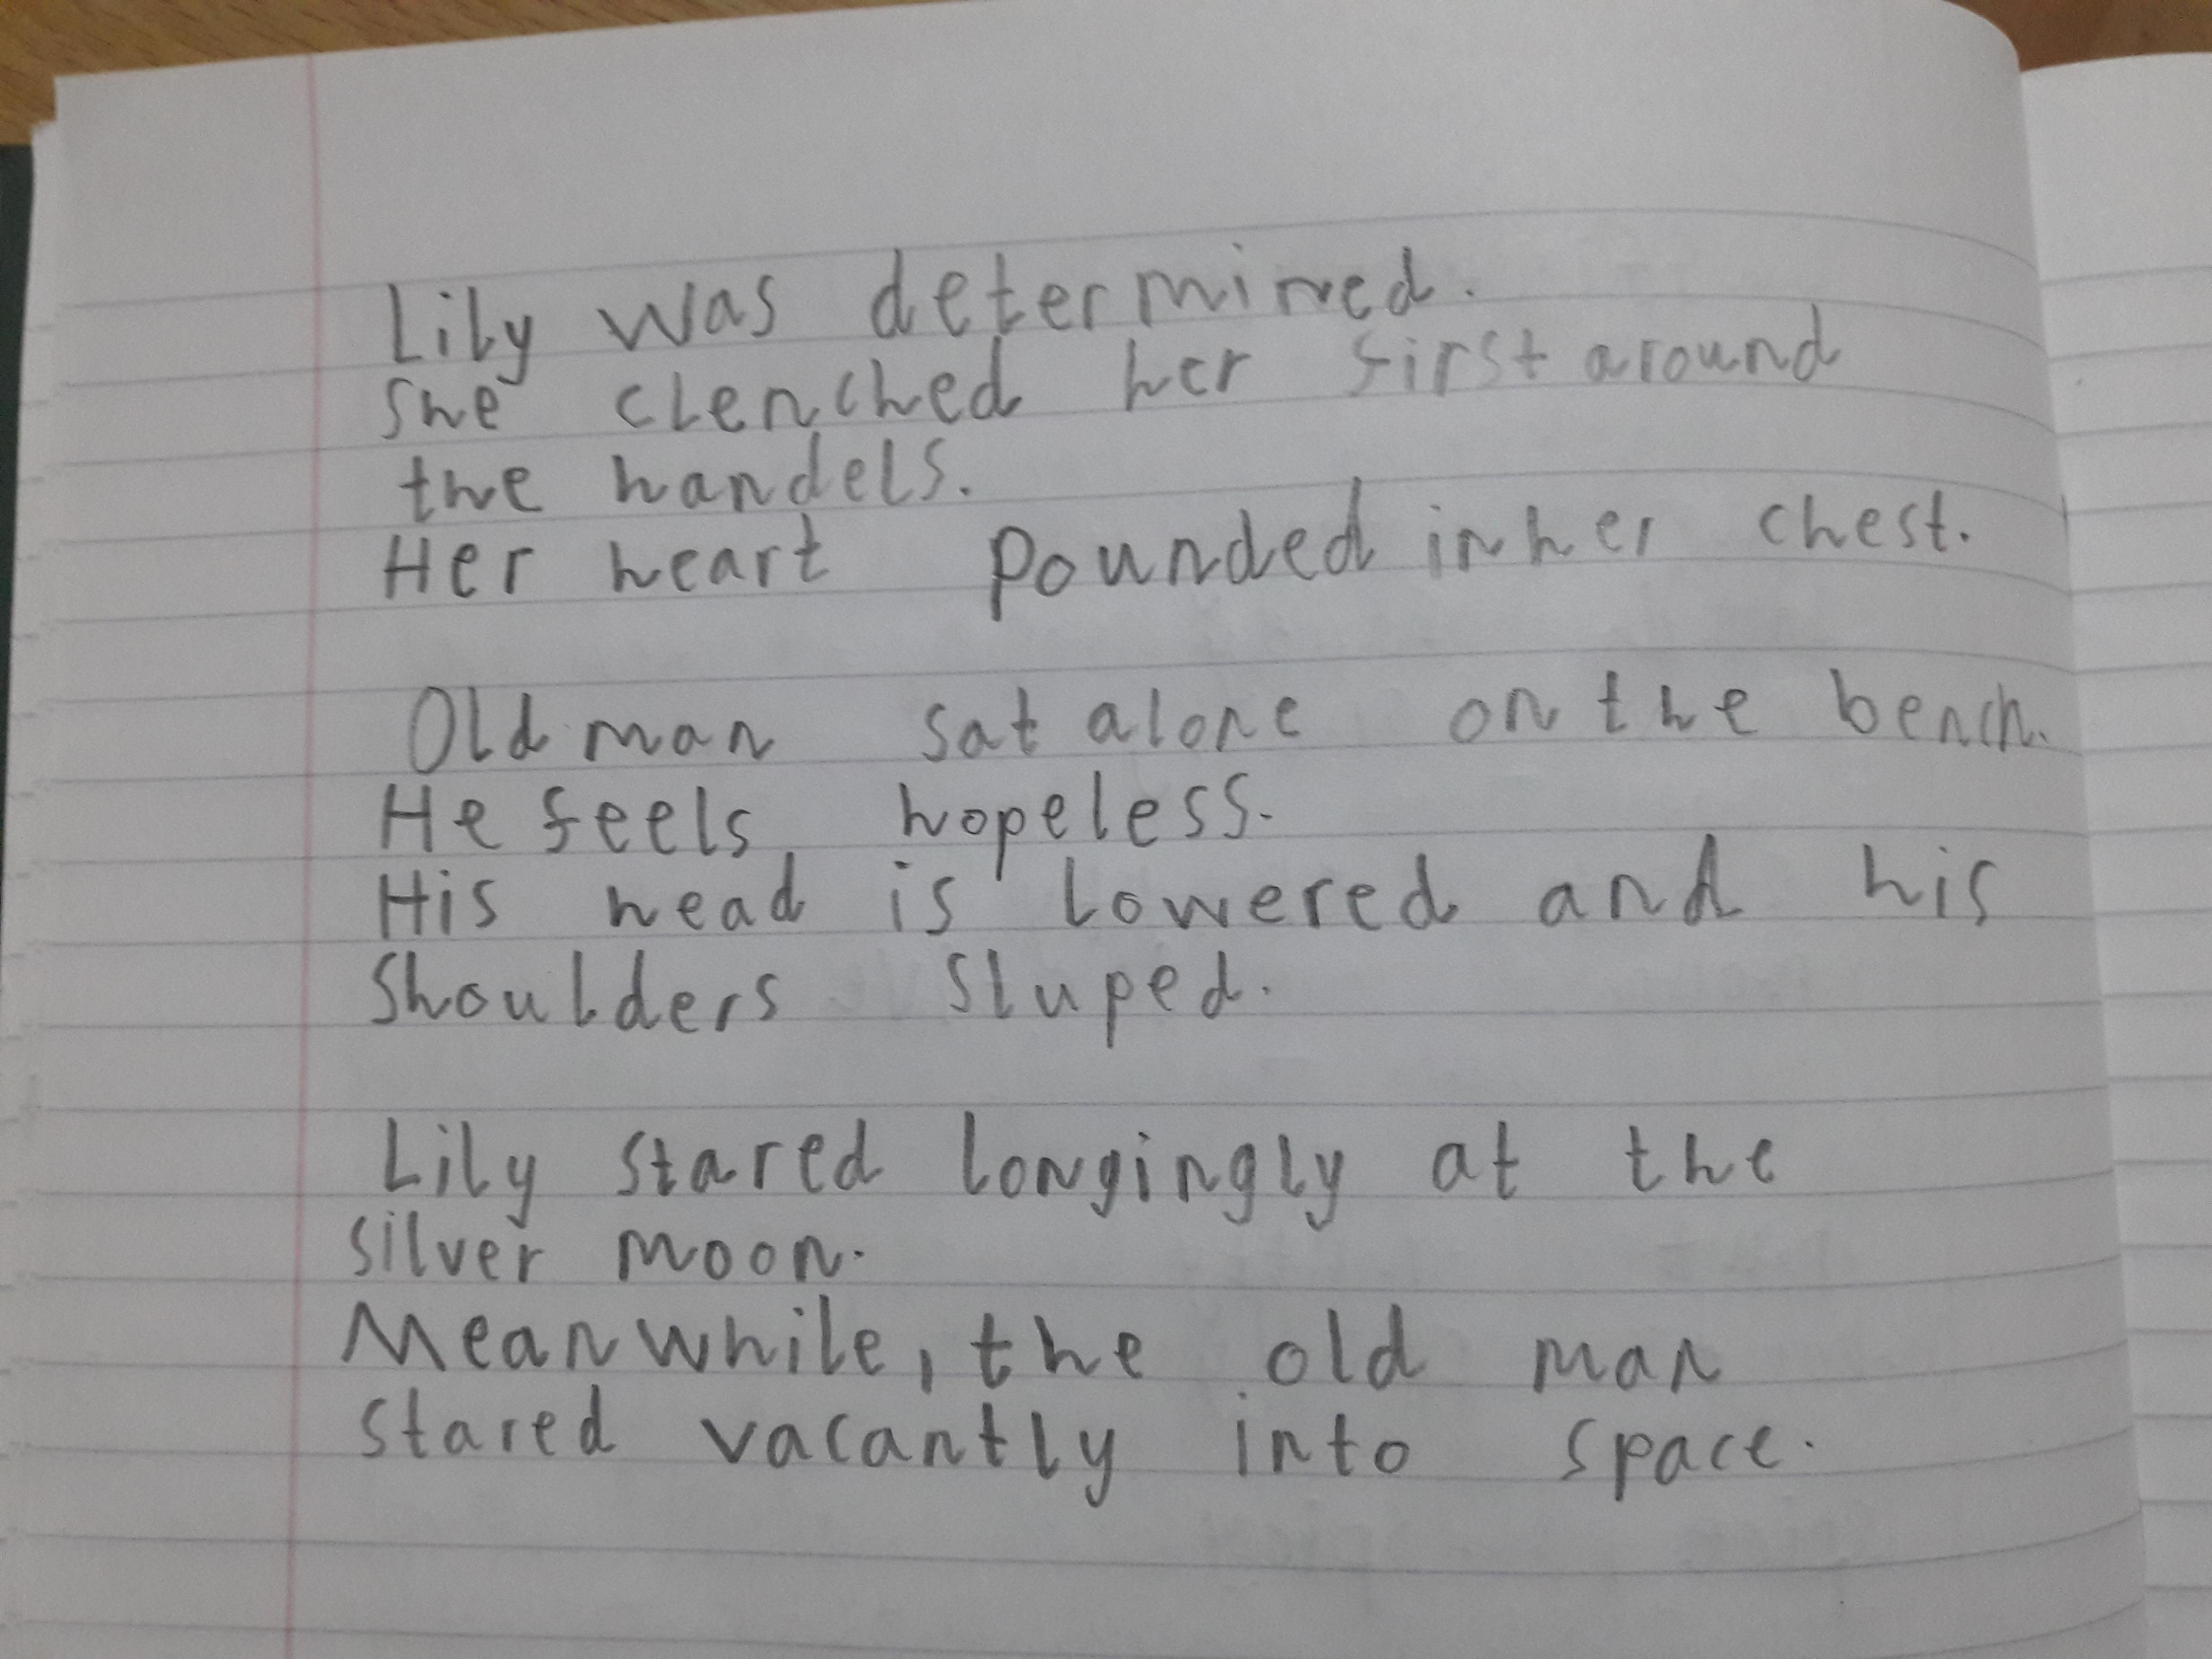 Lily was determined.
She clenched her first around
the handels.
Her heart pounded in her chest.
Old man sat alone on the bench.
He feels hopeless.
His head is lowered and his
shoulders sluped.
Lily stared longingly at the
silver moon.
Meanwhile, the old man
stared vacantly into space.